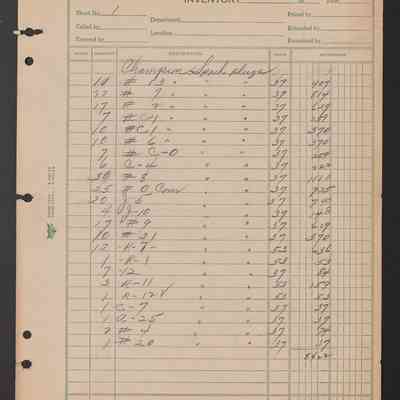 INVENTORY
Sheet No. 1
Department
Priced by
Called by
Location
Extended by
Entered by
Examined by
Champion Spark plugs
14 # 13 " " 37
22 # 7 " " 37 814
17 # 2 " " 37 629
7 # C-1 " " 37 259
10 # C 1 " " 37 370
10 # 6 " " 37 370
7 # C-0 " " 37 259
6 C-4 " " 37 222
30 # 3 " " 37 1110
25 # 0 Com " 37 925
20 J-5 " " 37
4 J-10 " " 37 148
17 # 9 " " 37 629
10 # 21 " " 37 370
12 R-7 " " 53 636
1 R-1 " " 53 53
7 12 " " 37
3 R-11 " " 53 159
1 R-12 " " 53 53
1 C-7 " " 37 37
1 A-25 " " 37 37
2 # 4 " " 37 74
1 # 20 " " 37 37